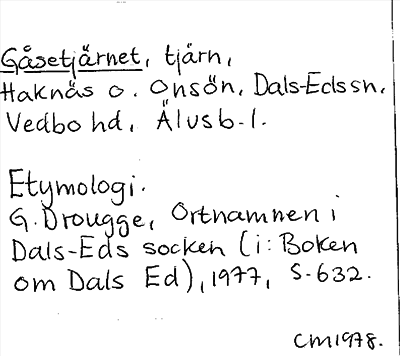 Gåsetjärnet, tjärn,
Haknäs o. Onsön, Dals-Eds sn,
Vedbo hd, Älvsb. l.
Etymologi.
G. Drougge, Ortnamnen i
Dals-Eds socken (i: Boken
om Dals Ed), 1977, S. 632.
CM1978.